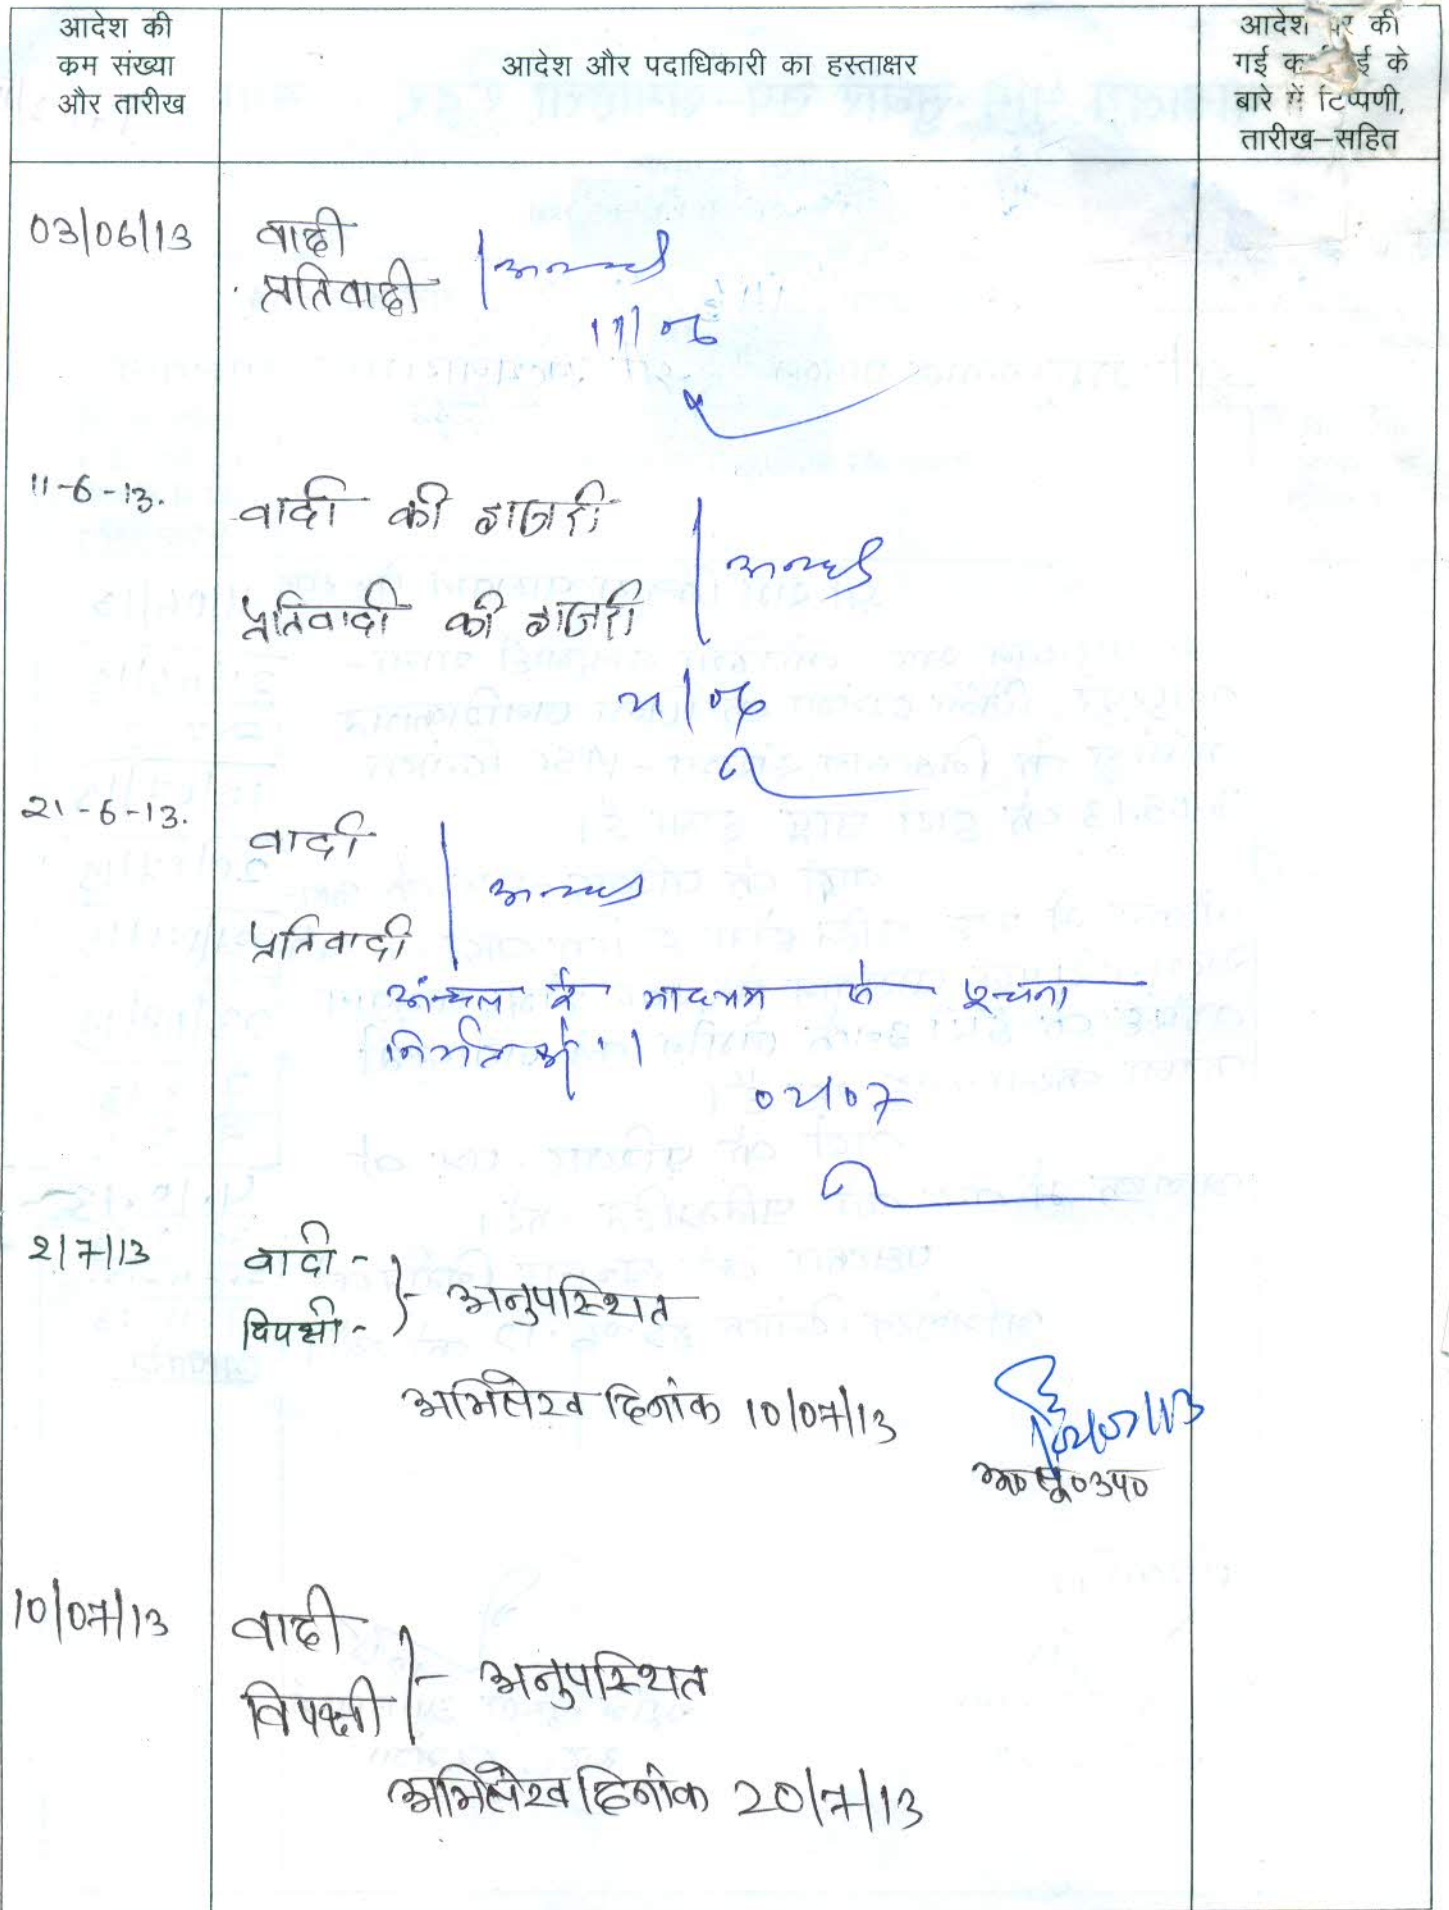 आदेश की
क्रम संख्या
और तारीख
आदेश और पदाधिकारी का हस्ताक्षर
आदेश पर की
गई के
बारे में टिप्पणी,
तारीख–सहित
03/06/13
वादी
प्रतिवादी
11/06
11-6-13.
वादी की हाजरी
प्रतिवादी की हाजरी
21/06
21-6-13.
वादी
प्रतिवादी
अंचल के माध्यम से सूचना
02/07
2/7/13
वादी -
विपक्षी -
अनुपस्थित
अभिलेख दिनांक 10/07/13
02/07/13
10/07/13
वादी
विपक्षी
अनुपस्थित
अभिलेख दिनांक 20/7/13